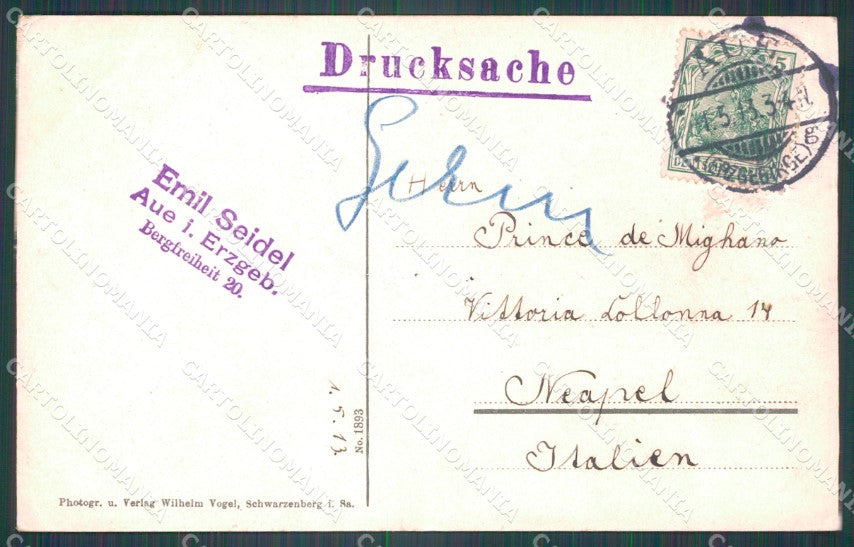 Drucksache
AUE
1.5.13.3-4.N.
(ERZGEBIRGE)
Emil Seidel
Aue i. Erzgeb.
Bergfreiheit 20.
Herrn
Prince de Mighano
Vittoria Collonna 14
Neapel
Italien
1.5.13
No. 1893
Photogr. u. Verlag Wilhelm Vogel, Schwarzenberg i. Sa.
CARTOLINOMANIA